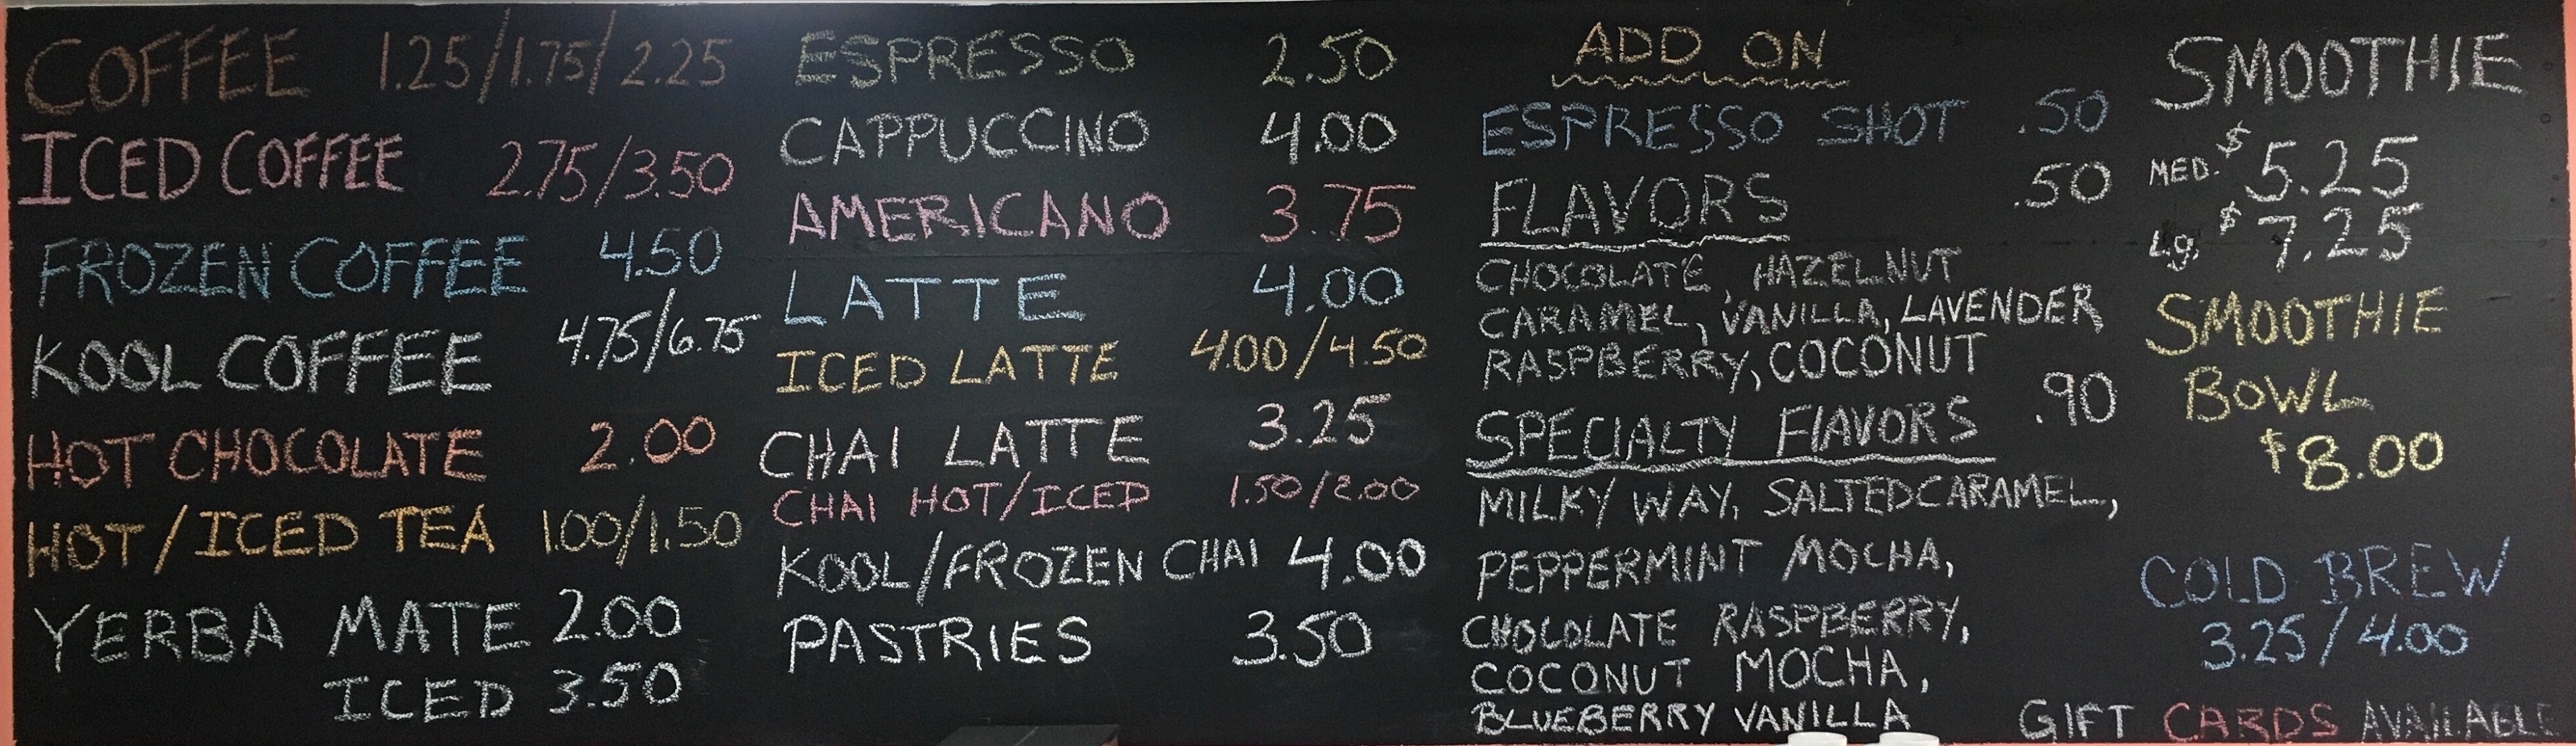 COFFEE 1.25/1.75/2.25
ICED COFFEE 2.75/3.50
FROZEN COFFEE 4.50
KOOL COFFEE 4.75/6.75
HOT CHOCOLATE 2.00
HOT/ICED TEA 1.00/1.50
YERBA MATE 2.00
ICED 3.50
ESPRESSO 2.50
CAPPUCCINO 4.00
AMERICANO 3.75
LATTE 4.00
ICED LATTE 4.00/4.50
CHAI LATTE 3.25
CHAI HOT/ICED 1.50/2.00
KOOL/FROZEN CHAI 4.00
PASTRIES 3.50
ADD ON
ESPRESSO SHOT .50
FLAVORS .50
CHOCOLATE, HAZELNUT
CARAMEL, VANILLA, LAVENDER
RASPBERRY, COCONUT
SPECIALTY FLAVORS .90
MILKY WAY, SALTED CARAMEL,
PEPPERMINT MOCHA,
CHOCOLATE RASPBERRY,
COCONUT MOCHA,
BLUEBERRY VANILLA
SMOOTHIE
MED. $5.25
Lg. $7.25
SMOOTHIE
BOWL
$8.00
COLD BREW
3.25/4.00
GIFT CARDS AVAILABLE